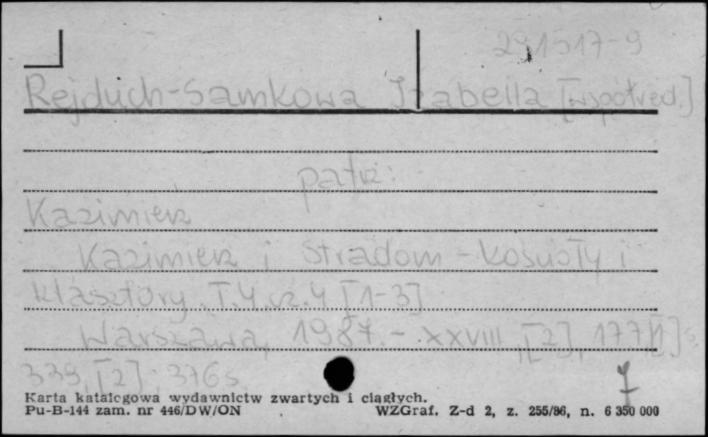 291517-9
Rejduch-Samkowa Izabella [współred.]
patrz:
Kazimierz
Kazimierz i Stradom - kościoły i
klasztory. T. 4, cz. 4 [1-3]
Warszawa, 1987. - XXVIII, [2], 177 [1] s.
339, [2] ; 376 s.
Karta katalogowa wydawnictw zwartych i ciągłych.
Pu-B-144 zam. nr 446/DW/ON WZGraf. Z-d 2, z. 255/86, n. 6 350 000